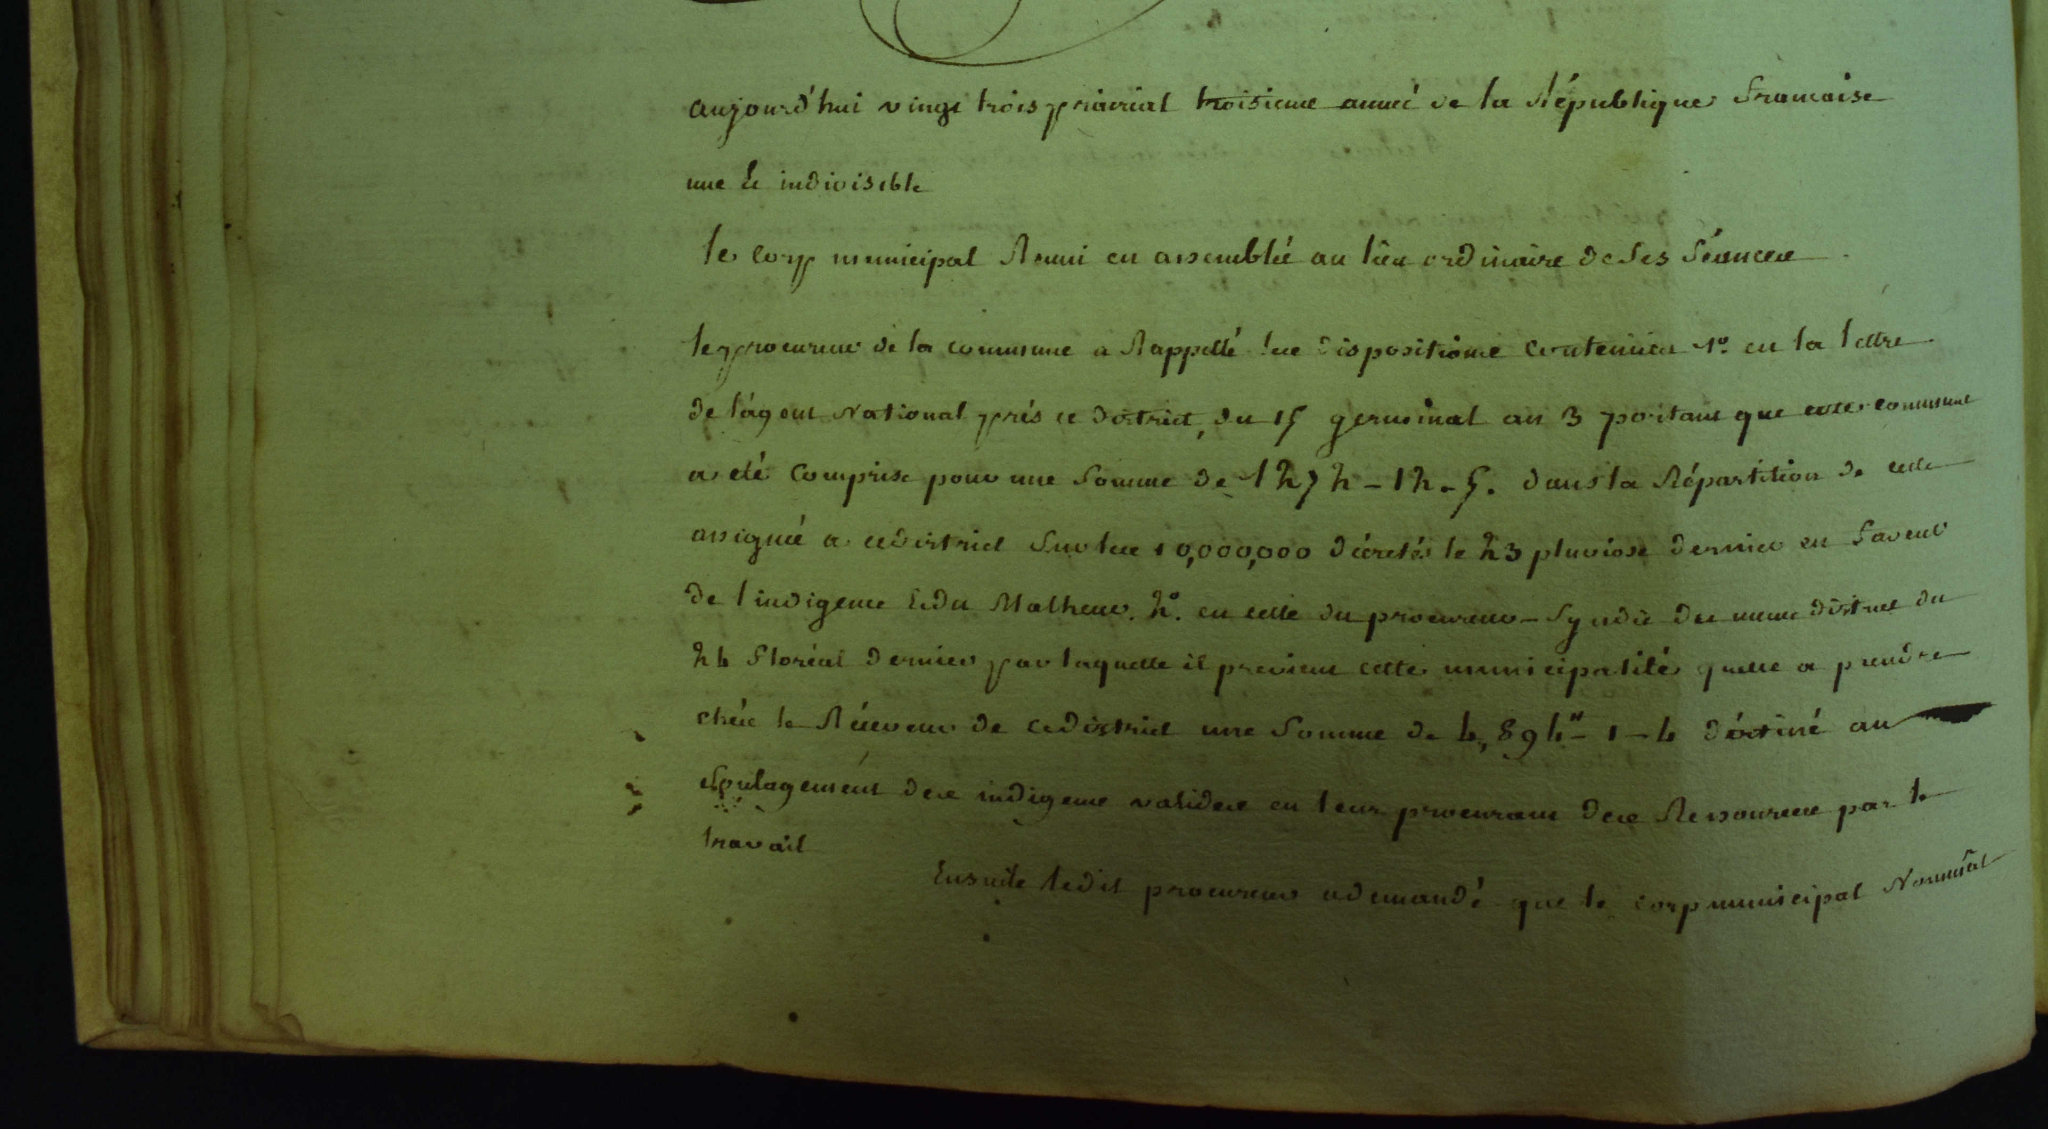 aujourd'hui vingt trois prairial troisieme anneé de la République francaise
une & indivisible
le corp municipal Reuni en assembleé au lieu ordinaire de ses séances
le procureur de la commune a Rappellé les dispositions contenues 1° en la lettre
de l'ágent National prés ce district, du 15 germinal an 3 portant que cette commune
a eté comprise pour une somme de 1272 - 12 - 5. dans la Répartition de celle
assigneé a ce district sur les 10,000,000 décretés le 23 pluviose dernier en faveur
de l'indigence & du Malheur. 2°. en celle du procureur - Syndic du meme district du
24 floréal dernier par laquelle il previent cette municipalité quelle a prendre
chés le Réceveur de ce district une somme de 4,894# - 1 - 4 déstiné au
soulagement des indigens valides en leur procurant des Ressources par le
travail
Ensuite ledit procureur a demandé que le corp municipal Nommat